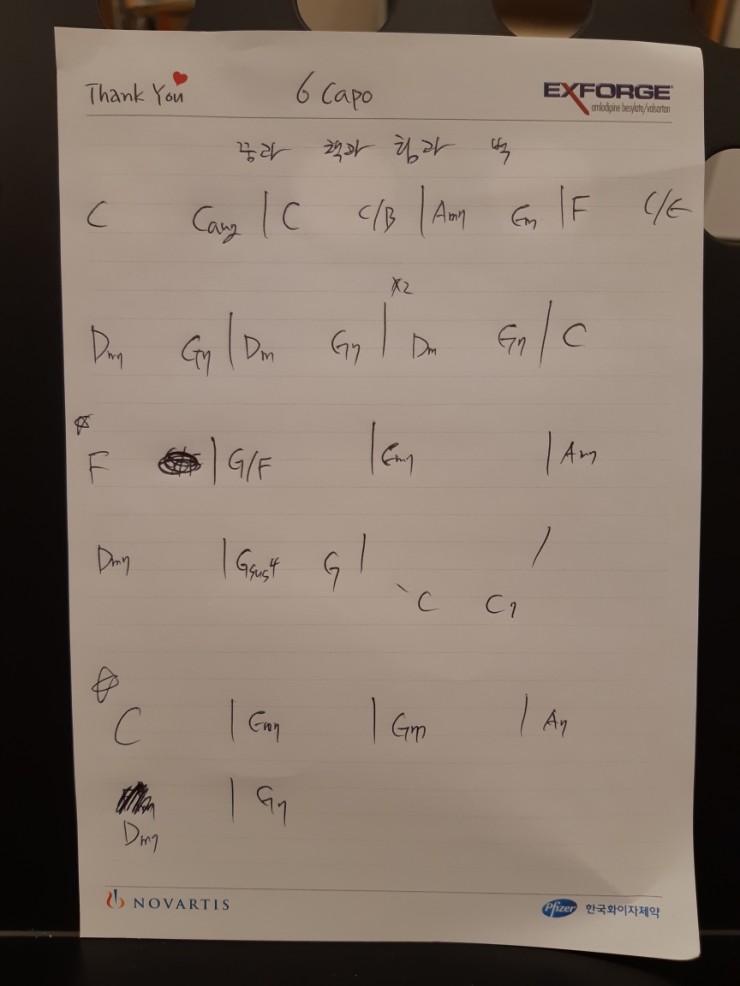 Thank You 6 Capo EXFORGE
amlodipine besylate/valsartan
꿈과 책과 힘과 벽
C Caug | C C/B | Am7 Em | F C/E
x2
Dm7 G7 | Dm G7 | Dm G7 | C
F | G/F | Em7 | Am7
Dm7 | Gsus4 G | C C7 /
C | Em7 | Gm | A7
Dm7 | G7
NOVARTIS Pfizer 한국화이자제약